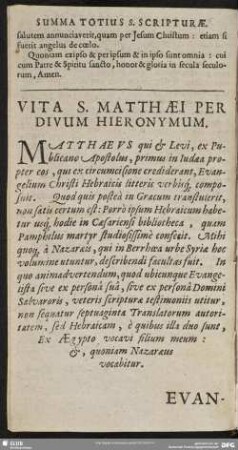 SUMMA TOTIUS S. SCRIPTURÆ.
salutem annunciaverit, quam per Jesum Christum: etiam si
fuerit angelus de cœlo.
Quoniam ex ipso & per ipsum & in ipso sunt omnia: cui
cum Patre & Spiritu sancto, honor & gloria in secula seculo-
rum, Amen.
VITA S. MATTHÆI PER
DIVUM HIERONYMUM.
MATTHAEVS qui & Levi, ex Pu-
blicano Apostolus, primus in Iudaea pro-
pter eos, qui ex circumcisione crediderant, Evan-
gelium Christi Hebraicis litteris verbisq́; compo-
suit. Quod quis postea in Græcum transtulerit,
non satis certum est: Porrò ipsum Hebraicum habe-
tur usq́; hodie in Cæsariensi bibliotheca, quam
Pamphilus martyr studiosissimè confecit. Mihi
quoq́; à Nazaræis, qui in Berrhœa urbe Syriæ hoc
volumine utuntur, describendi facultas fuit. In
quo animadvertendum, quod ubicunque Evange-
lista sive ex personâ suâ, sive ex personâ Domini
Salvatoris, veteris scripturæ testimoniis utitur,
non sequatur septuaginta Translatorum autori-
tatem, sed Hebraicam, è quibus illa duo sunt,
Ex Ægypto vocavi filium meum:
&, quoniam Nazaræus
vocabitur.
EVAN-